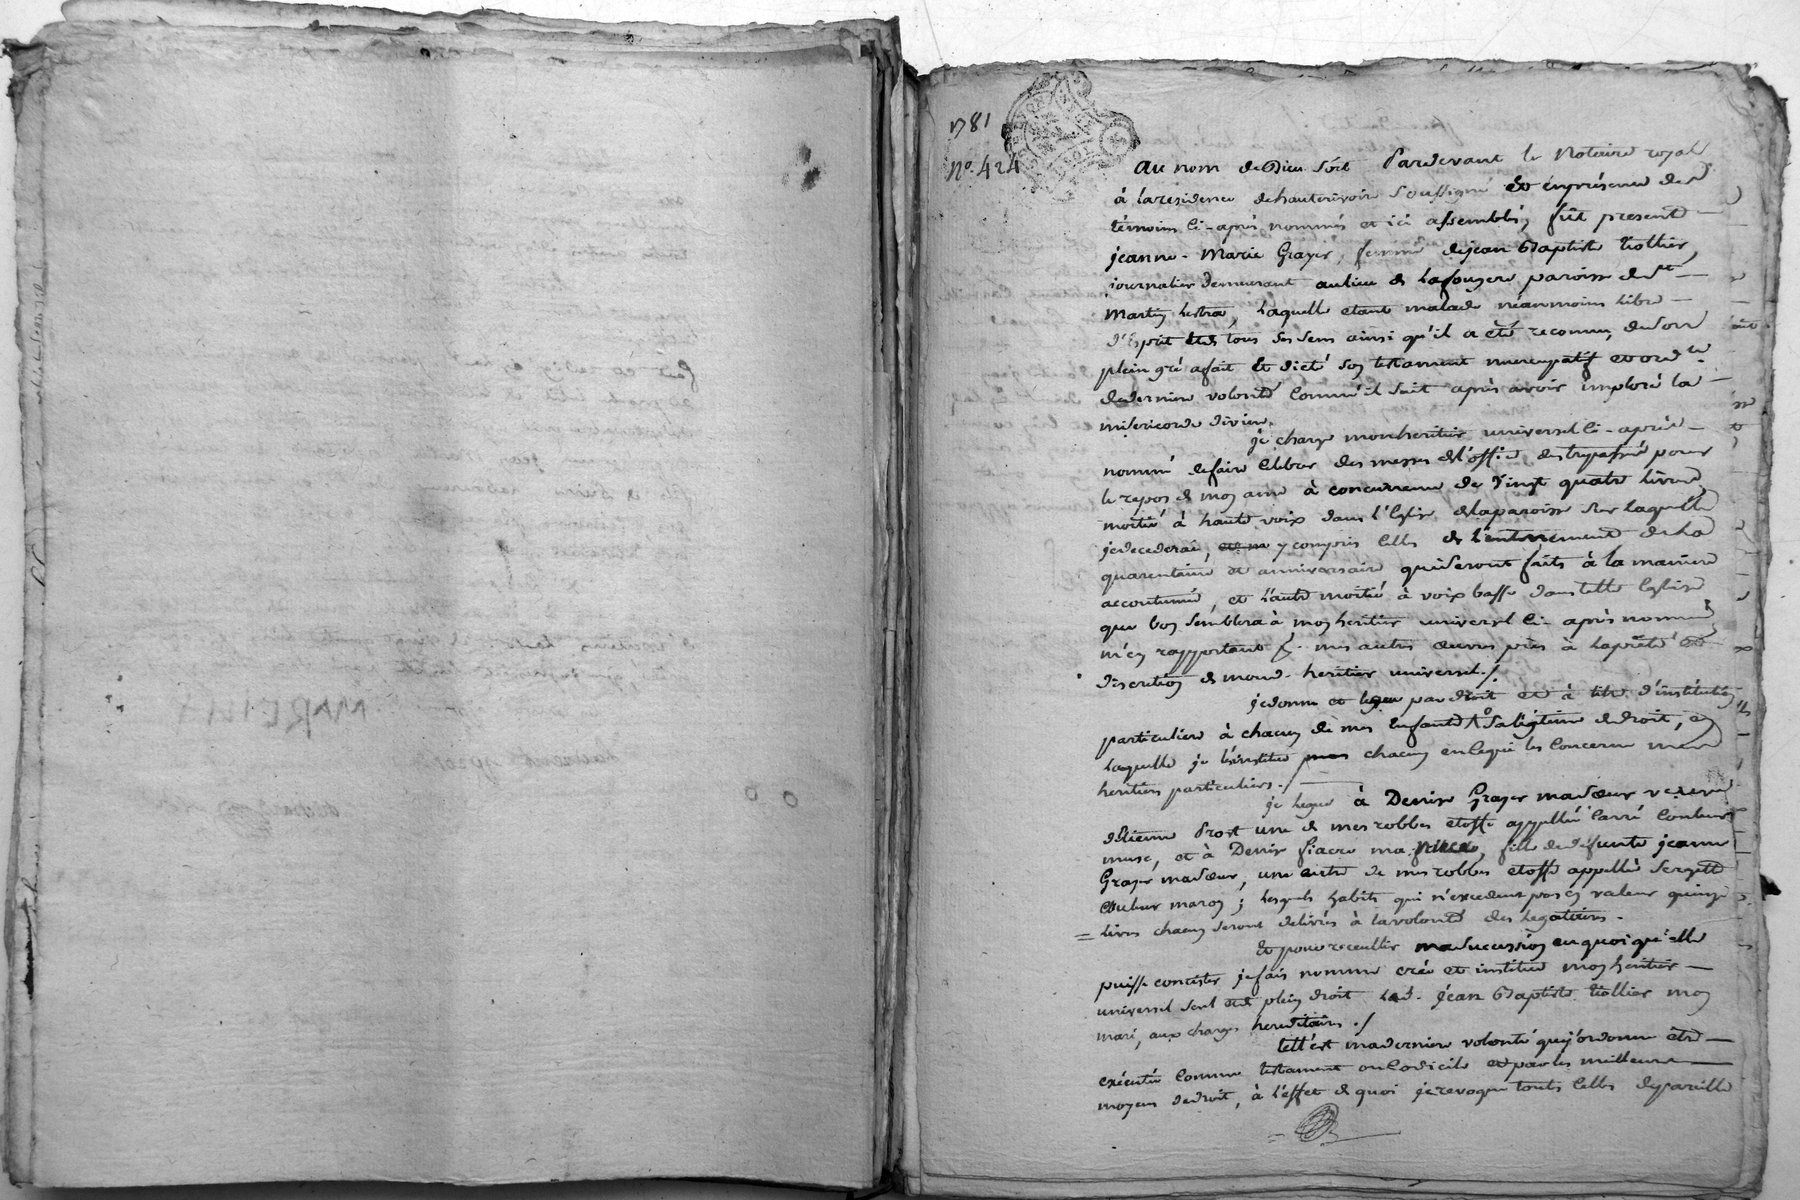 1781
N°. 424
Au nom de Dieu soit Pardevant le Notaire royal
à la residence de hauterivoire soussigné et en presence des
témoins ci-après nommés et ici assemblés, fût presente
jeanne-Marie Grayer, femme de jean Baptiste tiollier,
journalier demeurant au lieu de Lafougere paroisse de st
Martin Lestra, Laquelle etant malade néanmoins libre
d'Esprit et de tous ses sens ainsi qu'il a été reconnu, de son
plein gré a fait et dicté son testament nuncupatif et ord.re
de derniere volonté comme il suit après avoir imploré la
misericorde divine.
je charge mon heritier universel ci-après
nommé de faire celebrer des messes de l'office des trepassés pour
le repos de mon ame à concurrence de vingt quatre livres,
moitié à haute voix dans l'Eglise de la paroisse sur laquelle
je decederai, y compris celles de l'enterrement de la
quarentaine et anniversaire qui seront faits à la maniere
accoutumée, et l'autre moitié à voix basse dans telle Eglise
que bon semblera à mon heritier universel ci-après nommé
m'en rapportant p.r mes autres œuvres pies à la pieté et
discretion de mond. heritier universel./
je donne et legue par droit et à titre d'institution
particuliere à chacun de mes Enfants sa legitime de droit, en
laquelle je l'institue chacun en ce qui les concerne mes
heritiers particuliers./
je legue à Denise Grayer ma sœur veuve
d'Etienne Prost une de mes robbes etoffe appellée carré couleur
musc, et à Denise fiacre ma niece, fille de defunte jeanne
Grayer ma sœur, une autre de mes robbes etoffe appellé sergette
couleur maron; lesquels habits qui n'excedent pas en valeur quinze
livres chacun seront delivrés à la volonté des legataires.
Et pour receuillir ma succession en quoi qu'elle
puisse concister je fais nomme crée et institue mon heritier
universel seul et de plein droit led. jean Baptiste tiollier mon
mari, aux charges hereditaires./
tell'est ma derniere volonté que j'ordonne être
exécutée comme testament ou codicile et par les meilleurs
moyens de droit, à l'effet de quoi je revoque touts celles de pareille